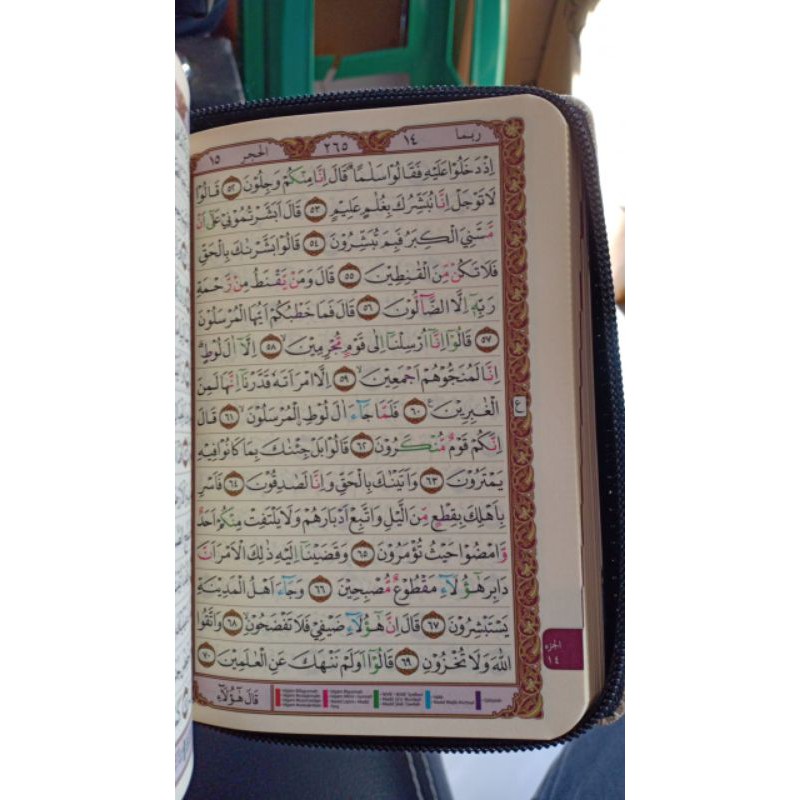 ربما ١٤ ٢٦٥ الحجر ١٥
اِذْ دَخَلُوْا عَلَيْهِ فَقَالُوْا سَلٰمًاۗ قَالَ اِنَّا مِنْكُمْ وَجِلُوْنَ ٥٢ قَالُوْا
لَا تَوْجَلْ اِنَّا نُبَشِّرُكَ بِغُلٰمٍ عَلِيْمٍ ٥٣ قَالَ اَبَشَّرْتُمُوْنِيْ عَلٰٓى اَنْ
مَّسَّنِيَ الْكِبَرُ فَبِمَ تُبَشِّرُوْنَ ٥٤ قَالُوْا بَشَّرْنٰكَ بِالْحَقِّ
فَلَا تَكُنْ مِّنَ الْقٰنِطِيْنَ ٥٥ قَالَ وَمَنْ يَّقْنَطُ مِنْ رَّحْمَةِ
رَبِّهٖٓ اِلَّا الضَّاۤلُّوْنَ ٥٦ قَالَ فَمَا خَطْبُكُمْ اَيُّهَا الْمُرْسَلُوْنَ
٥٧ قَالُوْٓا اِنَّآ اُرْسِلْنَآ اِلٰى قَوْمٍ مُّجْرِمِيْنَۙ ٥٨ اِلَّآ اٰلَ لُوْطٍۗ
اِنَّا لَمُنَجُّوْهُمْ اَجْمَعِيْنَۙ ٥٩ اِلَّا امْرَاَتَهٗ قَدَّرْنَآ اِنَّهَا لَمِنَ
الْغٰبِرِيْنَ ࣖ ٦٠ فَلَمَّا جَاۤءَ اٰلَ لُوْطِ ِۨالْمُرْسَلُوْنَۙ ٦١ قَالَ
اِنَّكُمْ قَوْمٌ مُّنْكَرُوْنَ ٦٢ قَالُوْا بَلْ جِئْنٰكَ بِمَا كَانُوْا فِيْهِ
يَمْتَرُوْنَ ٦٣ وَاَتَيْنٰكَ بِالْحَقِّ وَاِنَّا لَصٰدِقُوْنَ ٦٤ فَاَسْرِ
بِاَهْلِكَ بِقِطْعٍ مِّنَ الَّيْلِ وَاتَّبِعْ اَدْبَارَهُمْ وَلَا يَلْتَفِتْ مِنْكُمْ اَحَدٌ
وَّامْضُوْا حَيْثُ تُؤْمَرُوْنَ ٦٥ وَقَضَيْنَآ اِلَيْهِ ذٰلِكَ الْاَمْرَ اَنَّ
دَابِرَ هٰٓؤُلَاۤءِ مَقْطُوْعٌ مُّصْبِحِيْنَ ٦٦ وَجَاۤءَ اَهْلُ الْمَدِيْنَةِ
يَسْتَبْشِرُوْنَ ٦٧ قَالَ اِنَّ هٰٓؤُلَاۤءِ ضَيْفِيْ فَلَا تَفْضَحُوْنِۙ ٦٨ وَاتَّقُوا
اللّٰهَ وَلَا تُخْزُوْنِ ٦٩ قَالُوْٓا اَوَلَمْ نَنْهَكَ عَنِ الْعٰلَمِيْنَ ٧٠
ع
الجزء
١٤
قَالَ هٰٓؤُلَاۤءِ